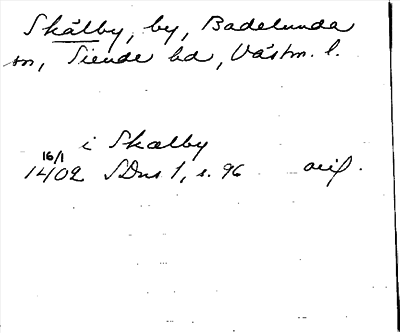 Skälby, by, Badelunda
sn, Siende hd, Västm. l.
i Skalby
16/1
1402 SDns 1, s. 96 orig.